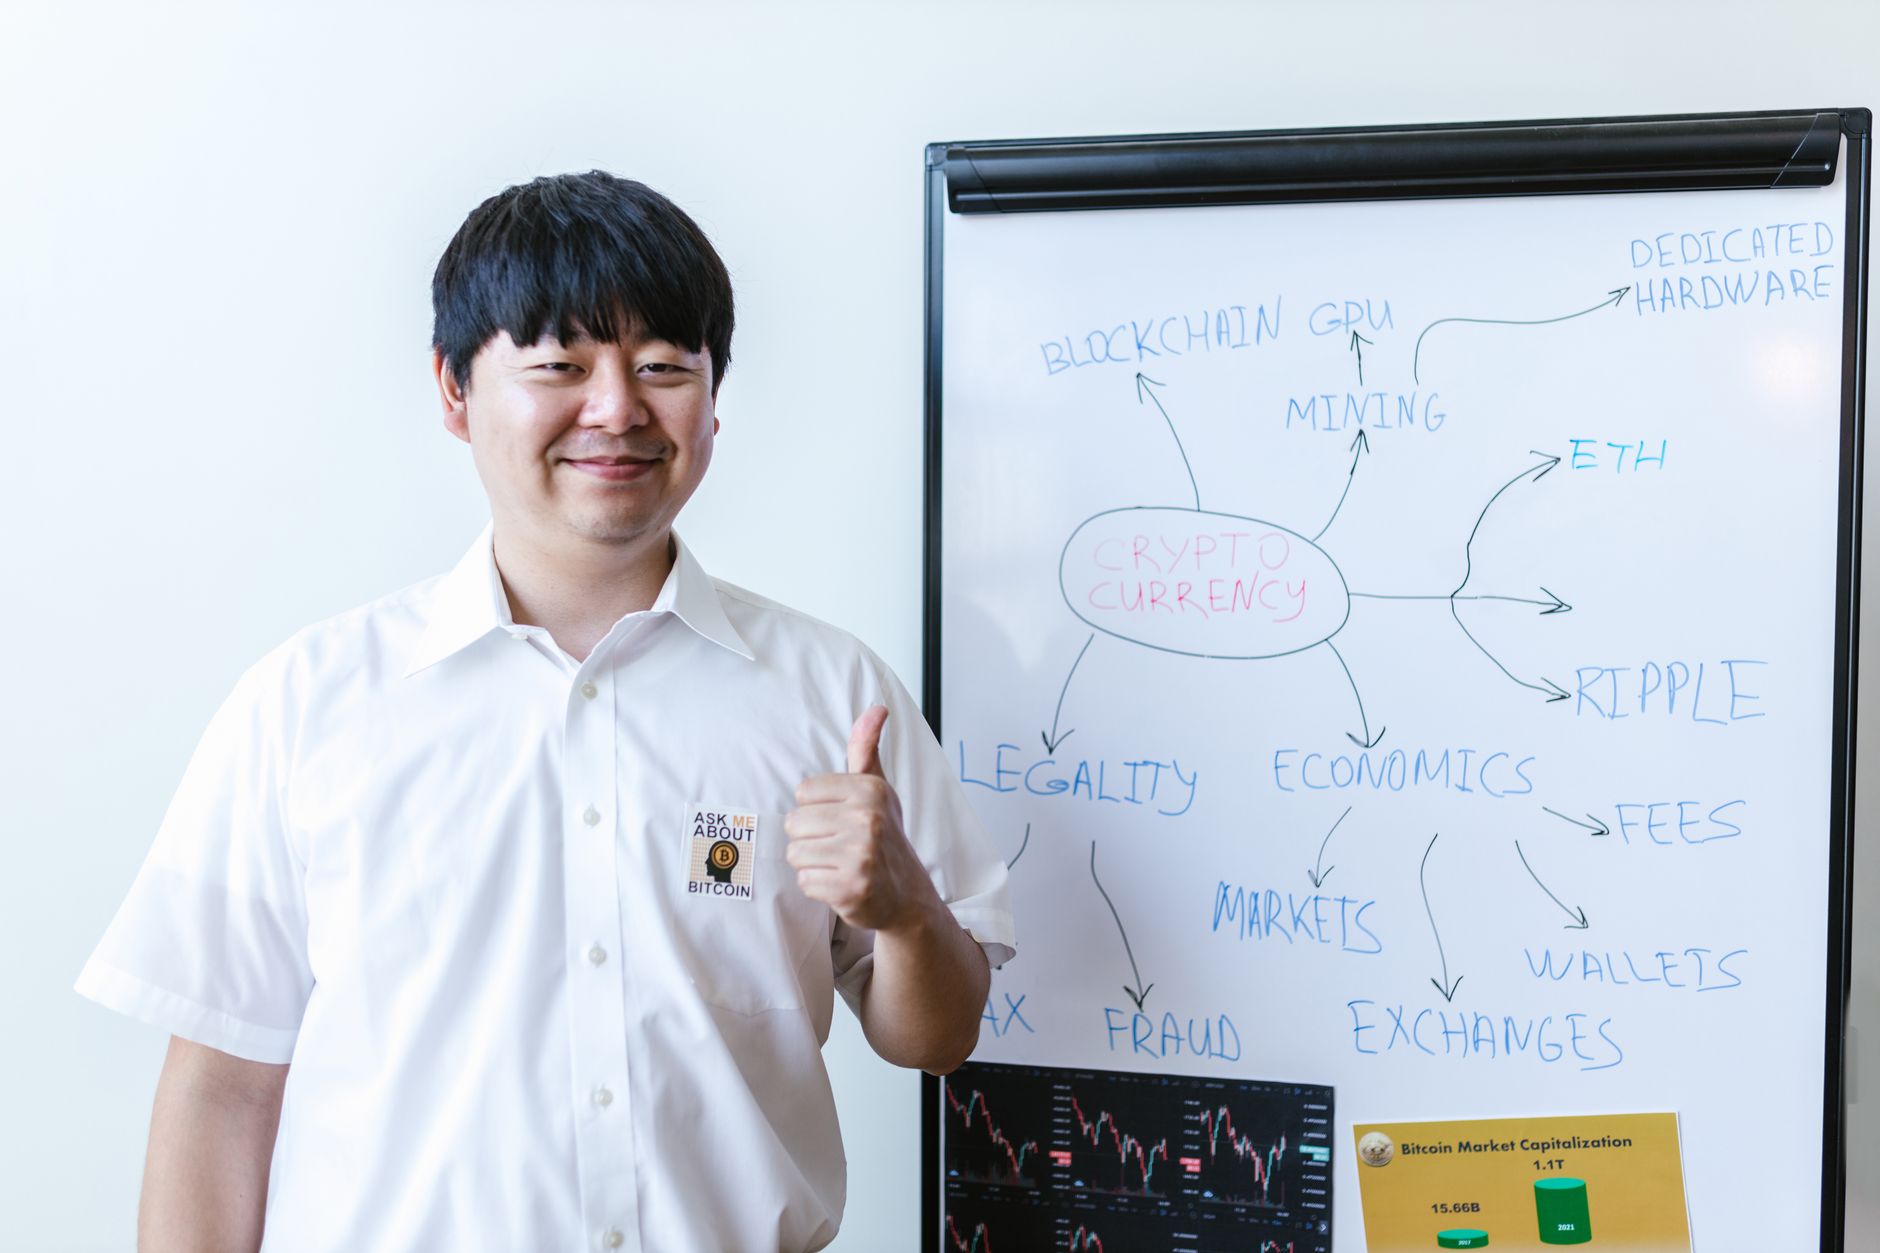 DEDICATED
HARDWARE
BLOCKCHAIN GPU
MINING
ETH
CRYPTO
CURRENCY
RIPPLE
LEGALITY
ECONOMICS
FEES
MARKETS
WALLETS
AX
FRAUD
EXCHANGES
ASK ME
ABOUT
BITCOIN
Bitcoin Market Capitalization
1.1T
15.66B
2021
2017